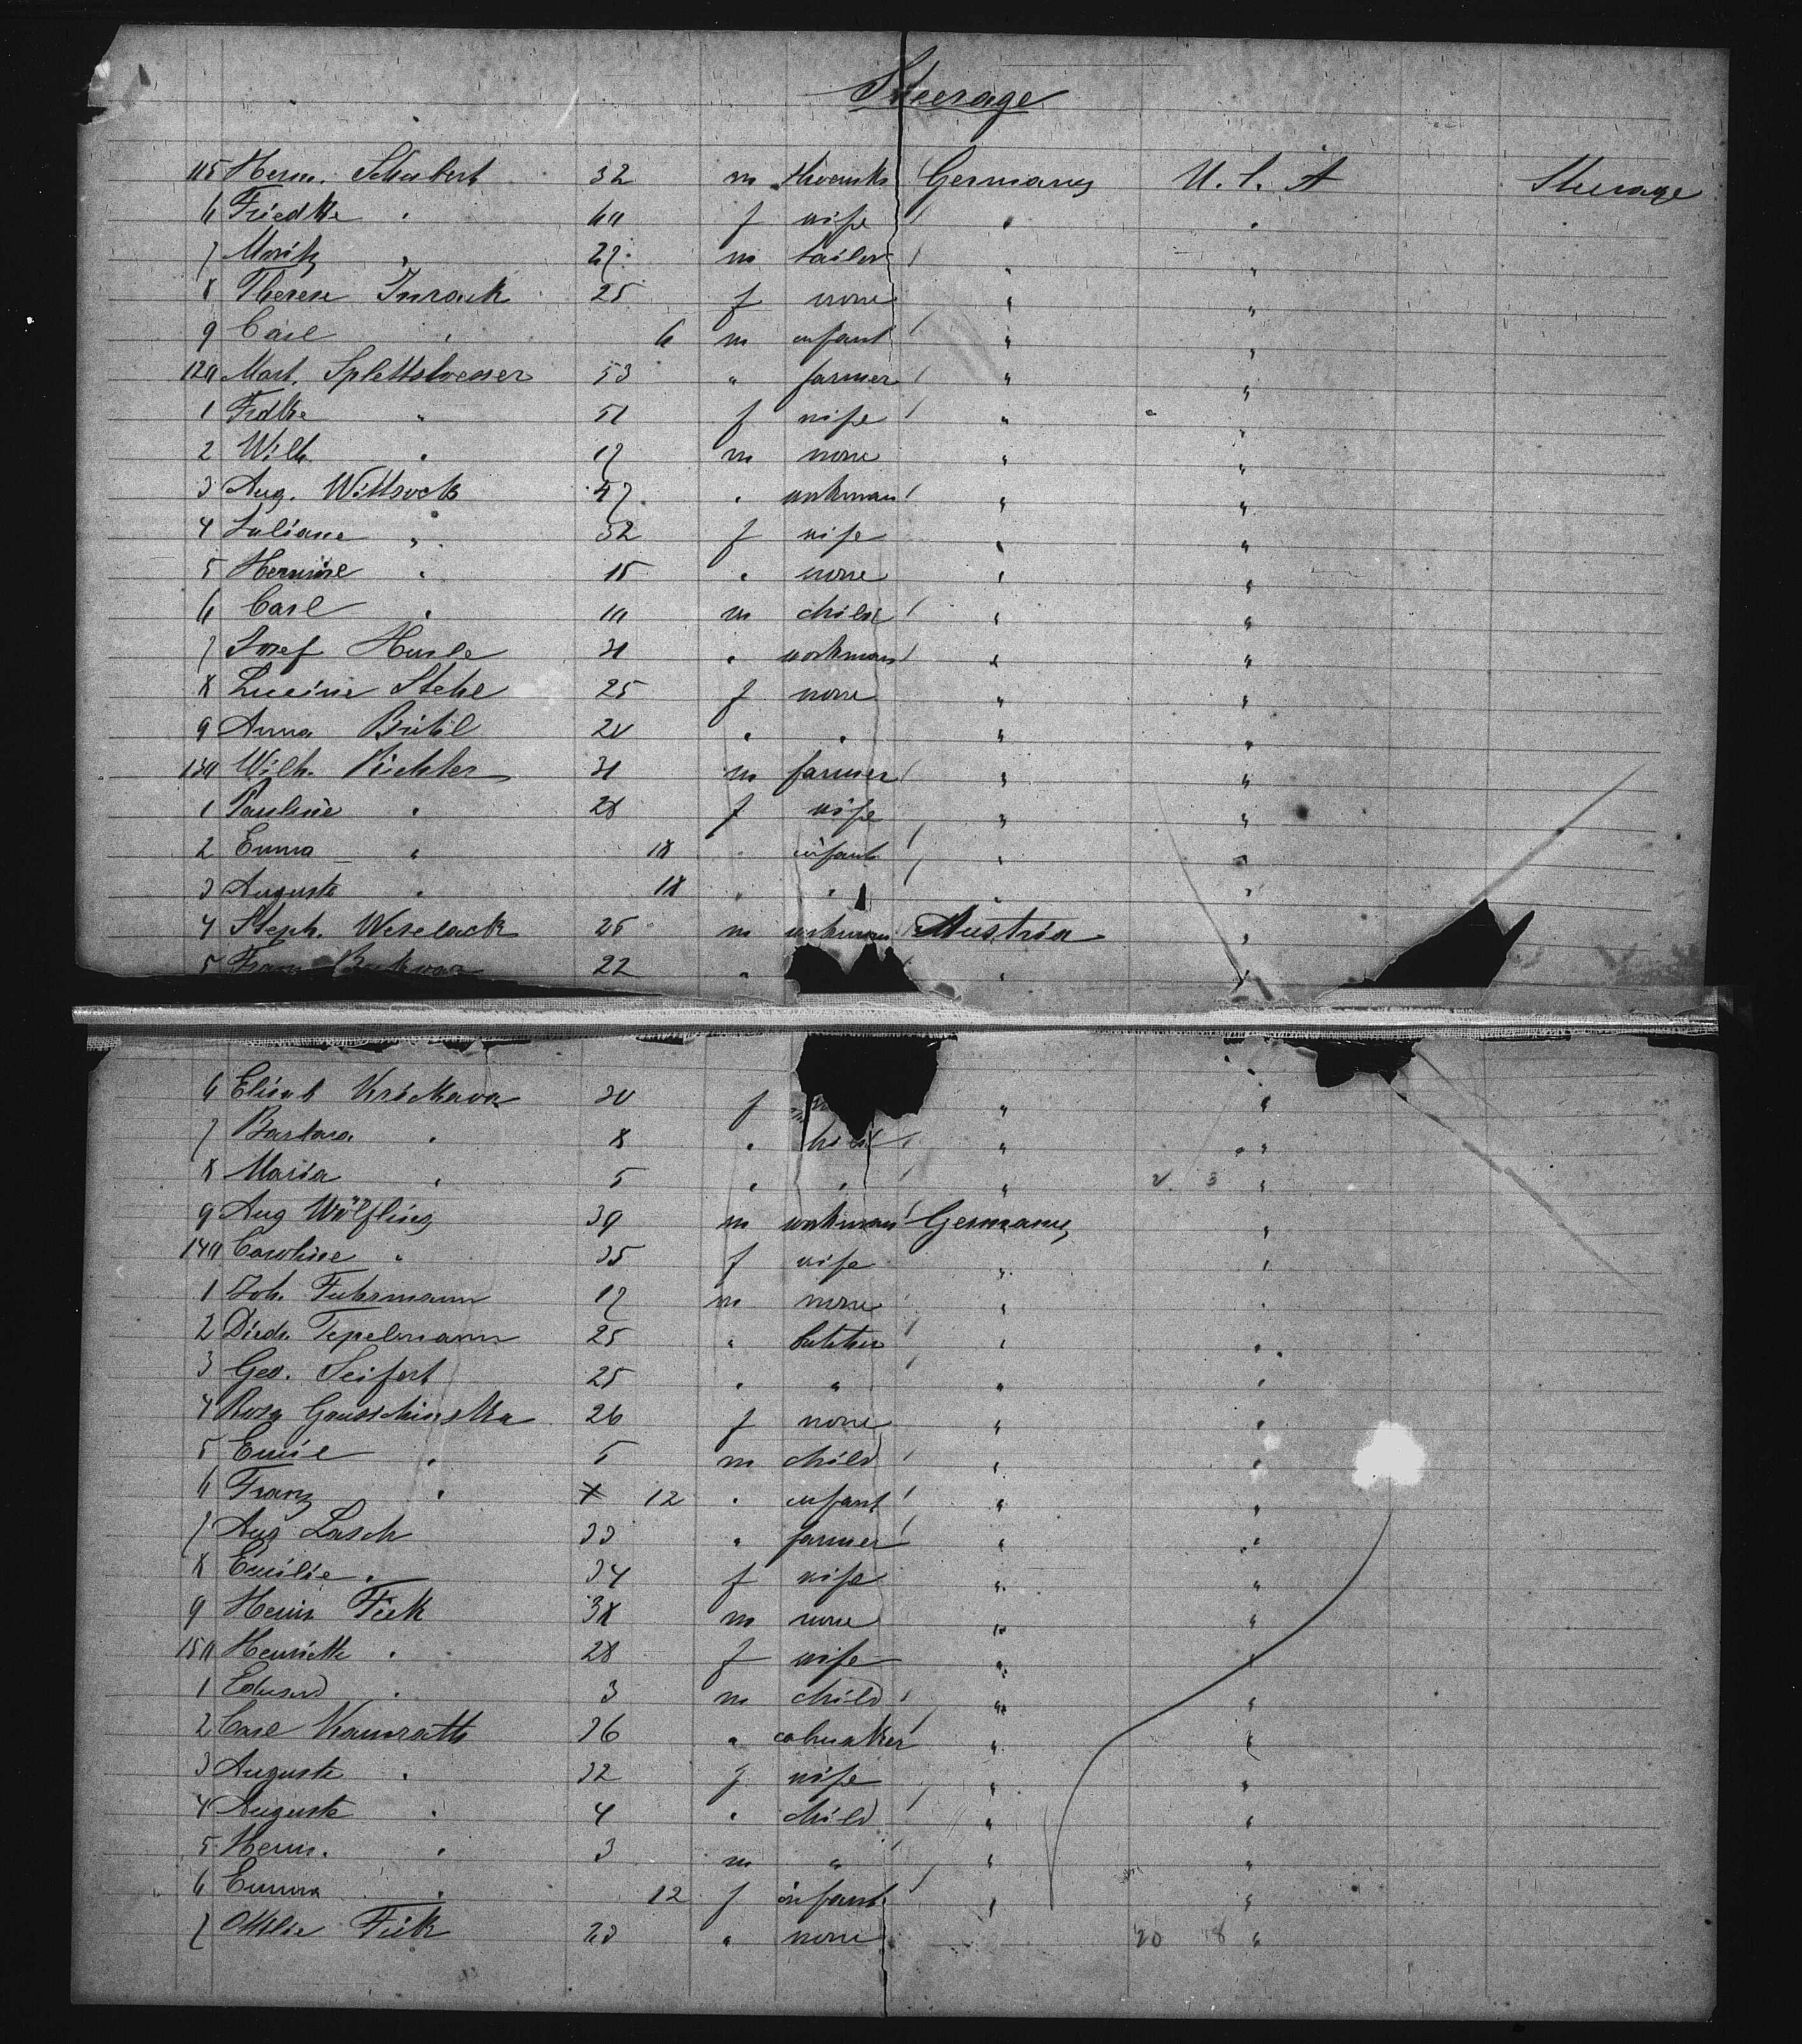 Steerage
115 Herm. Schubert 32 m Germany U. S. A Steerage
6 Friedke " 60 f wife " "
7 Moritz " 27 m tailor " "
8 Therese 25 f none " "
9 Carl " 6 m infant " "
120 Mart. Splettstoesser 53 " farmer " "
1 Fridke " 51 f wife " "
2 Wilh. " 17 m none " "
3 Aug. Wittsock 47 " workman " "
4 Juliane " 32 f wife " "
5 Hermine " 15 " none " "
6 Carl " 10 m child " "
7 Josef 31 " workman " "
8 Stehe 25 f none " "
9 Anna 20 " " " "
130 Wilh. Richter 31 m farmer " "
1 Pauline " 28 f wife " "
2 Emma " 18 " infant " "
3 Auguste " 18 " " " "
4 Steph. Weselack 25 m workman Austria "
5 Franz 22 " " "
6 Elisab 30 f " "
7 Barbara " 8 " child " "
8 Maria " 5 " " " "
9 Aug Wölfling 39 m workman Germany "
140 Caroline " 35 f wife " "
1 Joh. Fuhrmann 17 m none " "
2 Diedr. Tepelmann 25 " butcher " "
3 Geo. Seifert 25 " " " "
4 Rosa Gauschinska 26 f none " "
5 Emil " 5 m child " "
6 Franz " 12 " infant " "
7 Aug Lasch 33 " farmer " "
8 Emilie " 34 f wife " "
9 Herm Fick 38 m none " "
150 Henriette " 28 f wife " "
1 Eduard " 3 m child " "
2 Carl Kamrath 36 " " "
3 Auguste " 32 f wife " "
4 Auguste " 4 " child " "
5 Herm. " 3 m " " "
6 Emma " 12 f infant " "
7 Ottilie Fick " none 20 8 "